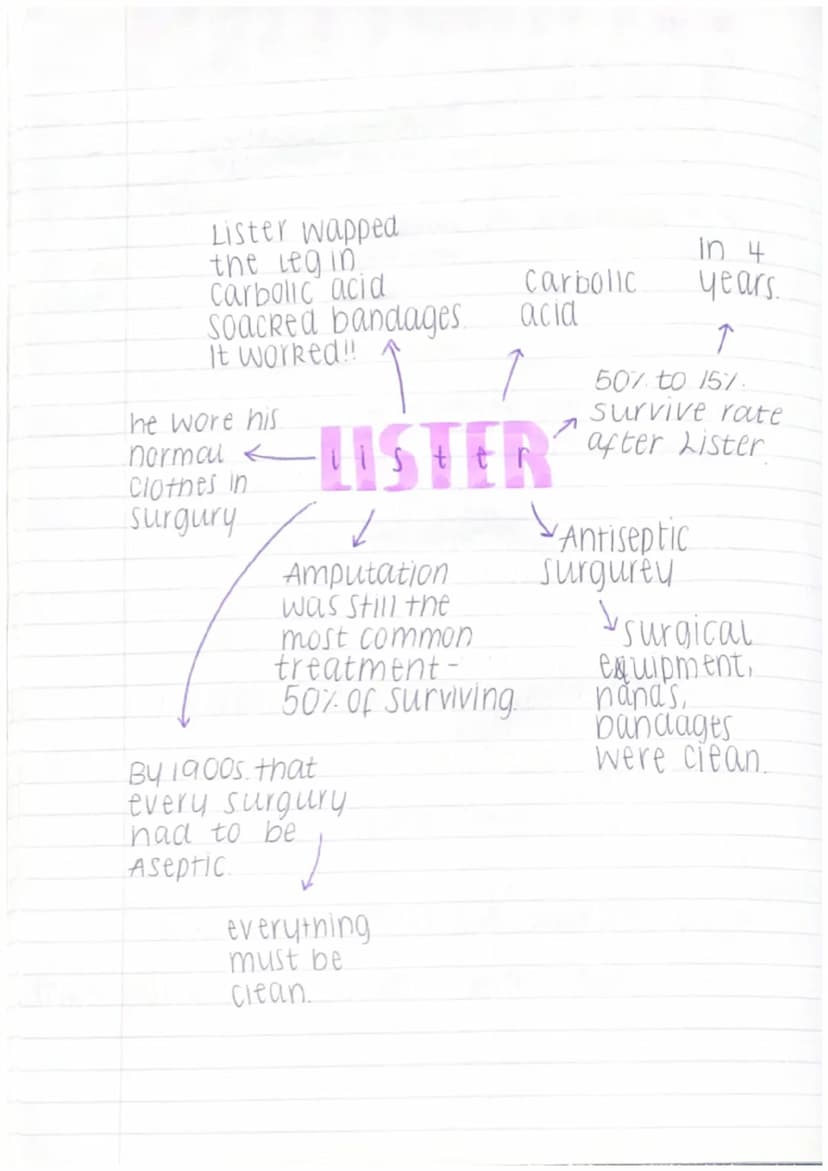 Lister wapped
the leg in
carbolic acid
soacked bandages.
It worked!!
carbolic
acid
In 4
years.
50% to 15%.
survive rate
after Lister.
he wore his
normal
clothes in
surgury
LISTER
lister
Amputation
was still the
most common
treatment -
50% of surviving.
Antiseptic
surgurey
surgical
equipment,
hands,
bandages
were clean.
By 1900s. that
every surgury
had to be
Aseptic.
everything
must be
clean.